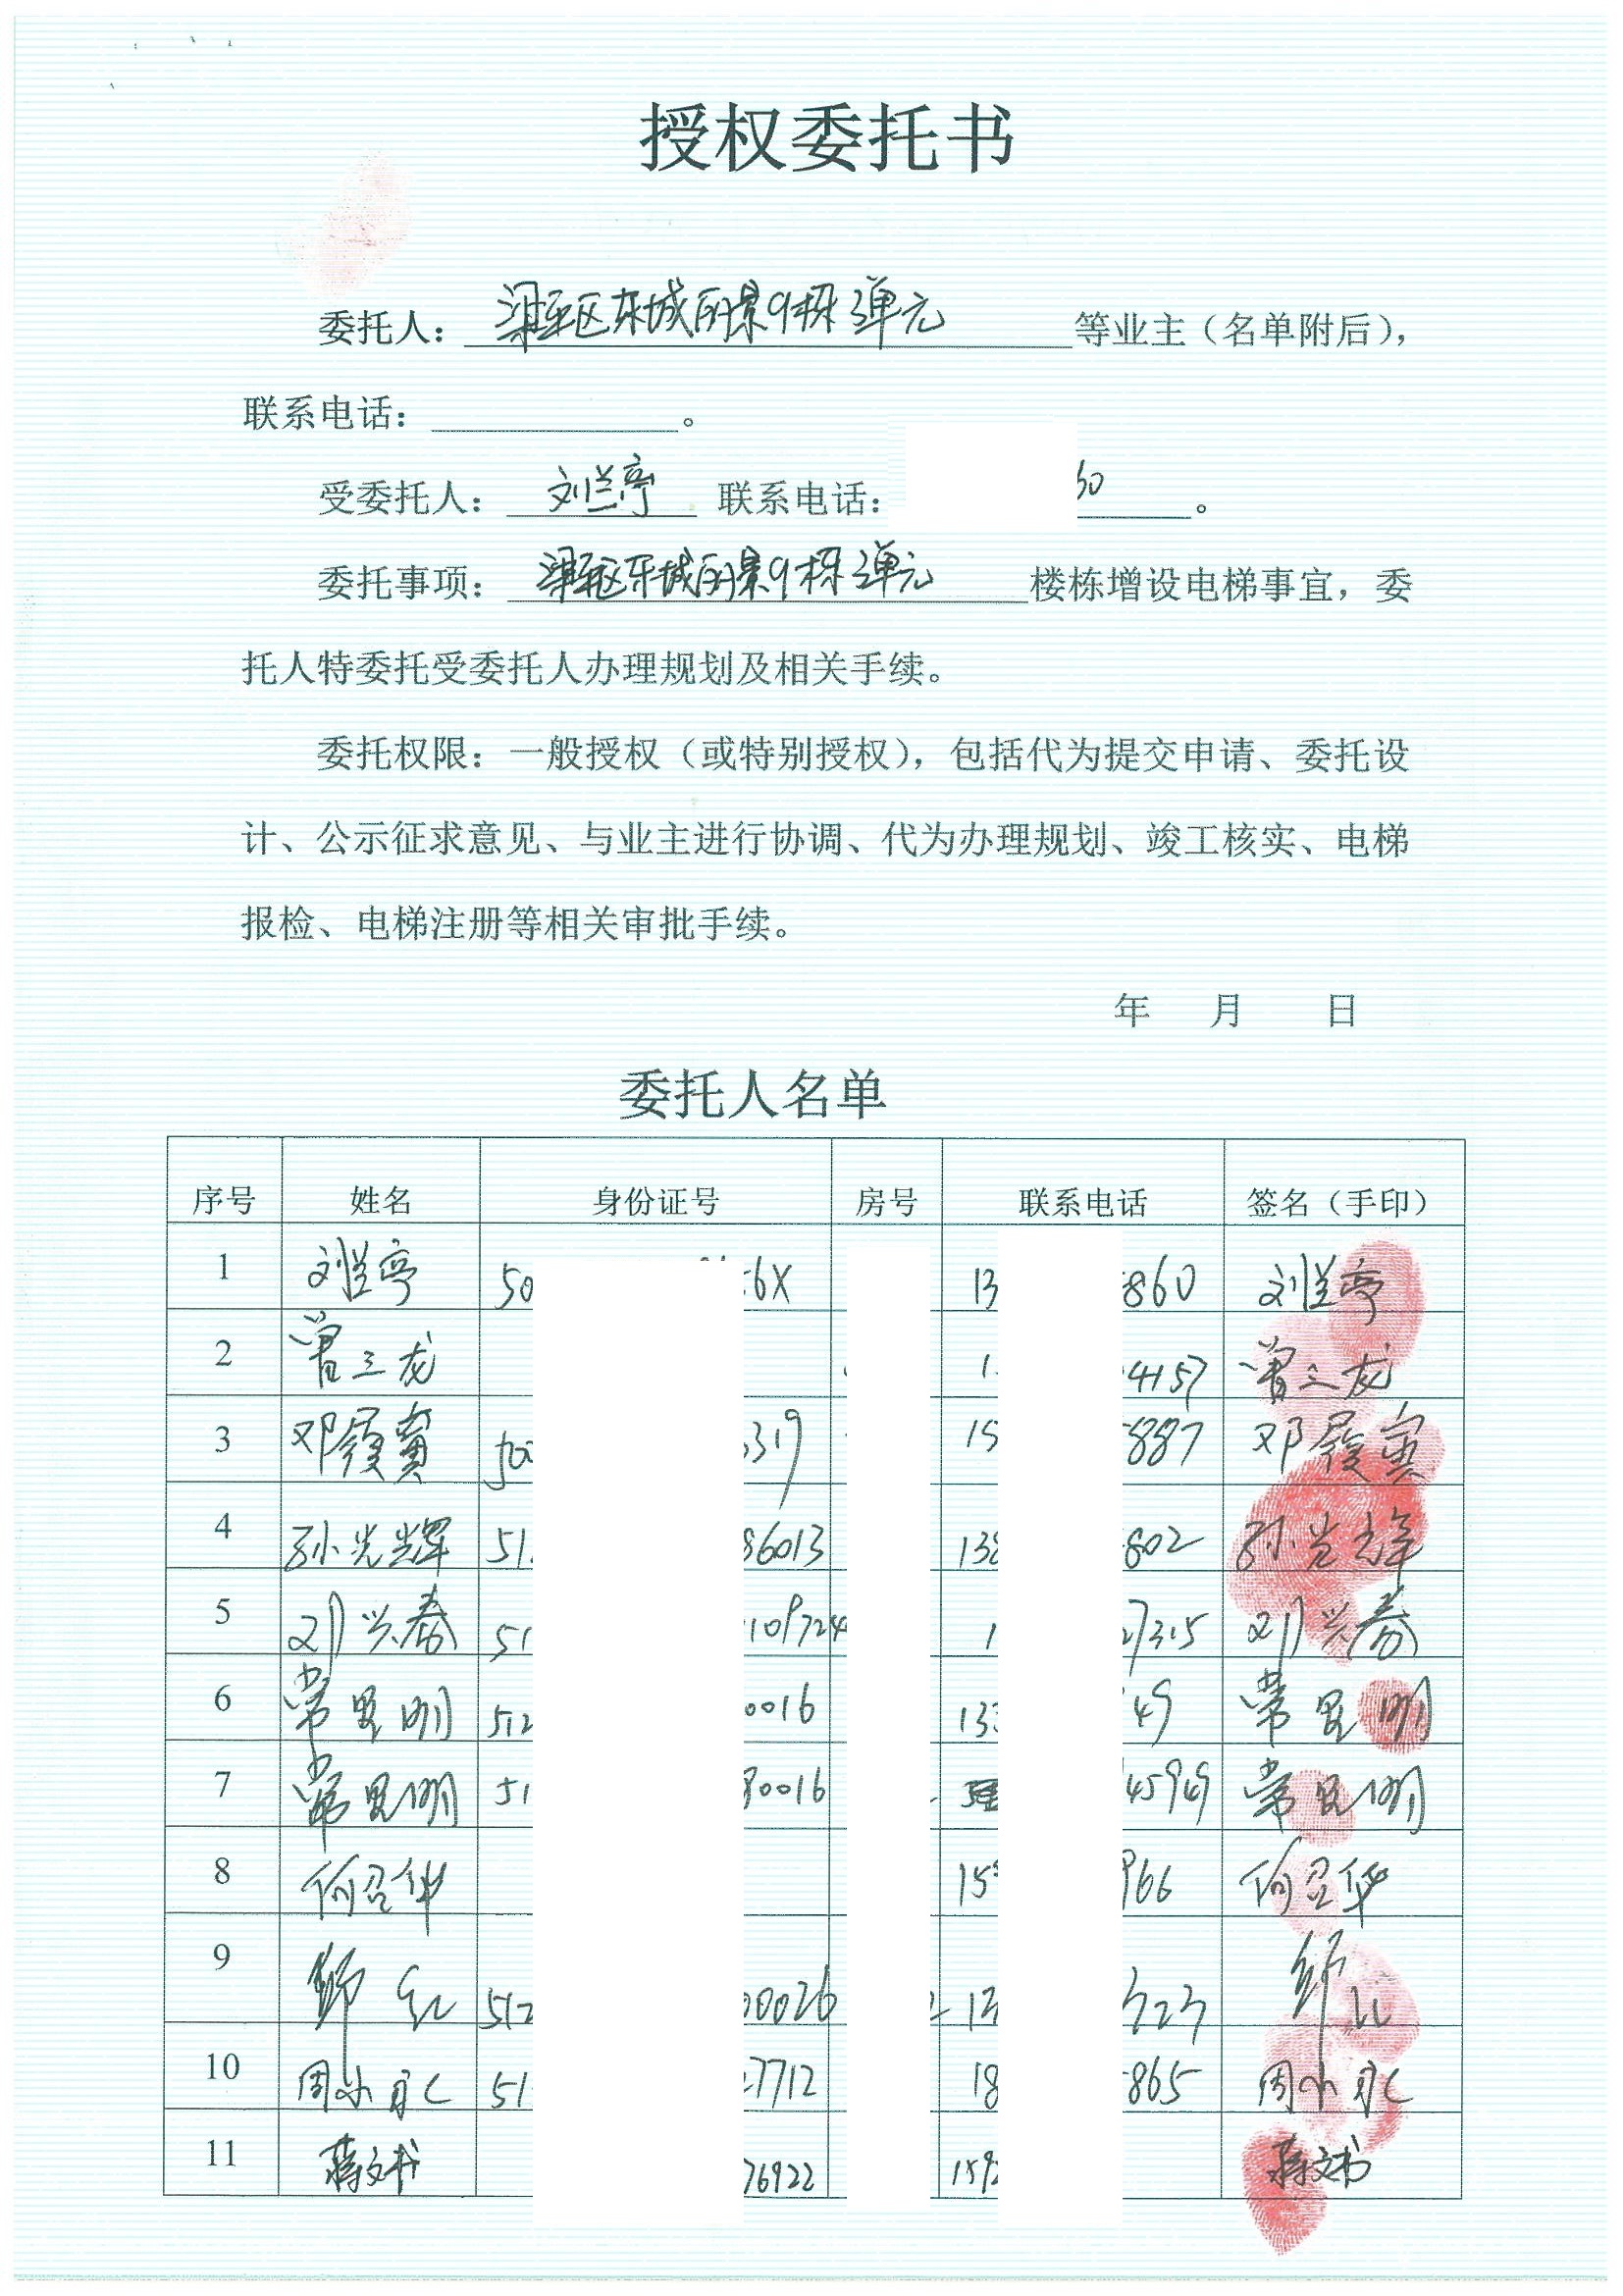 授权委托书
委托人：梁平区东城丽景9栋3单元等业主（名单附后），
联系电话：　　　　。
受委托人：刘兰亭 联系电话：30。
委托事项：梁平区东城丽景9栋3单元楼栋增设电梯事宜，委
托人特委托受委托人办理规划及相关手续。
委托权限：一般授权（或特别授权），包括代为提交申请、委托设
计、公示征求意见、与业主进行协调、代为办理规划、竣工核实、电梯
报检、电梯注册等相关审批手续。
年 月 日
委托人名单
序号 姓名 身份证号 房号 联系电话 签名（手印）
1 刘兰亭 50 56X 13 860 刘兰亭
2 曾三龙 1 4157 曾三龙
3 邓 500 319 15 887 邓
4 孙光辉 51 86013 138 802 孙光辉
5 刘兴春 51 109724 1 7315 刘兴春
6 常昆明 512 0016 133 49 常昆明
7 常昆明 51 80016 45949 常昆明
8 何召华 15 966 何召华
9 红 512 00026 13 323
10 周小永 51 7712 18 865 周小永
11 蒋文书 76922 159 蒋文书